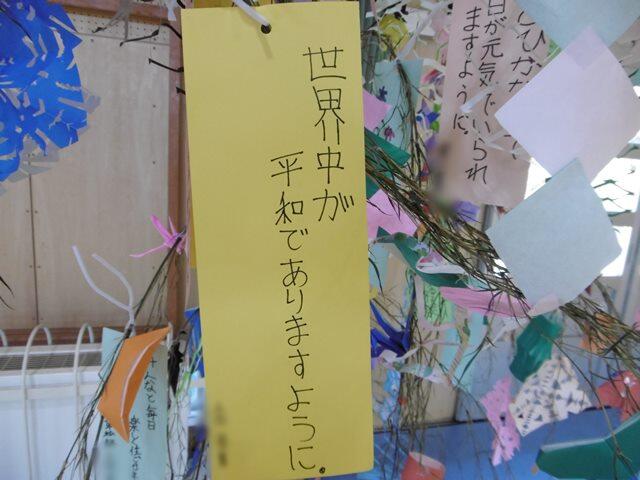 世界中が
平和でありますように。
日が元気でいられ
ますように。
んなと毎日